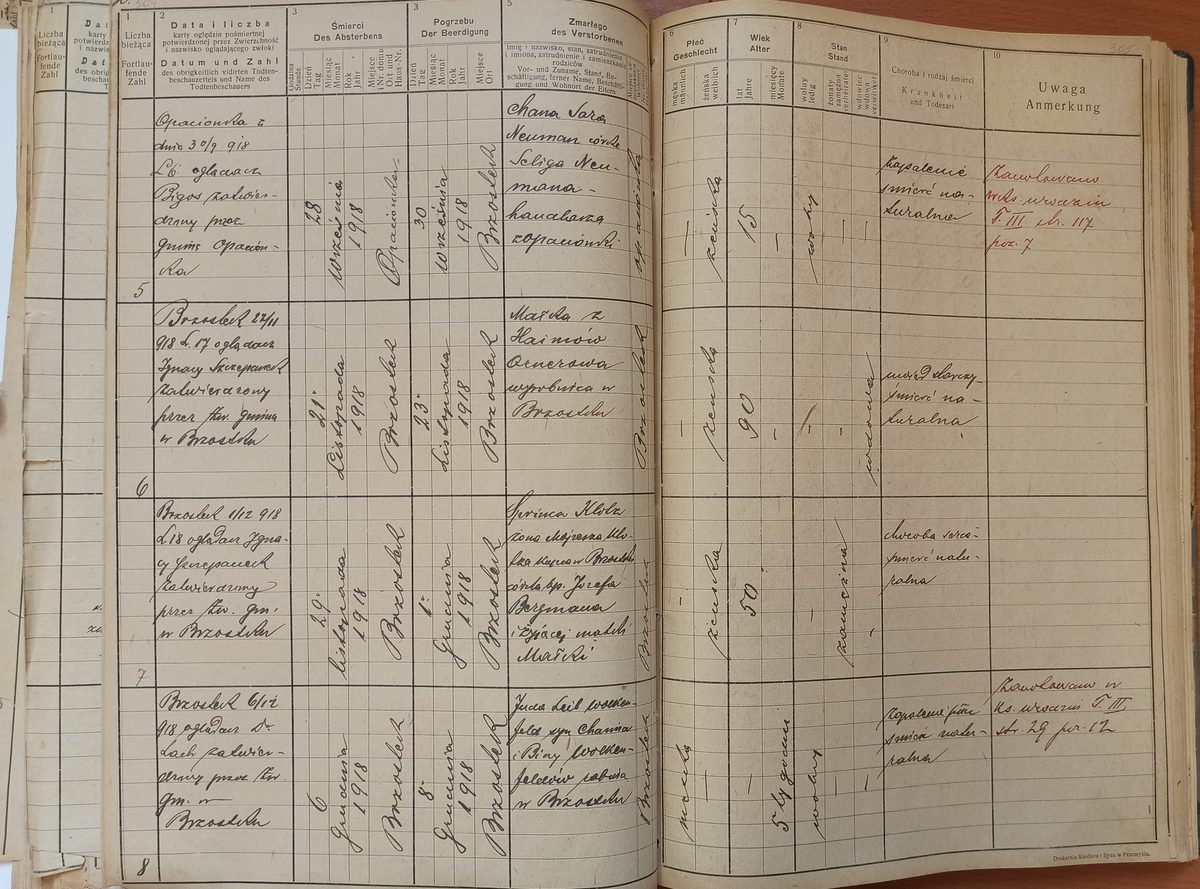 305
1
Liczba
bieżąca
Fortlau-
fende
Zahl
2
Data i liczba
karty oględzin pośmiertnej
potwierdzonej przez Zwierzchność
i nazwisko oglądającego zwłoki
Datum und Zahl
des obrigkeitlich vidirten Todten-
beschauzettels und Name des
Todtenbeschauers
3
Śmierci
Des Absterbens
Godzina
Stunde
Dzień
Tag
Miesiąc
Monat
Rok
Jahr
Miejsce
(Nr. domu)
Ort und
Haus-Nr.
3
Pogrzebu
Der Beerdigung
Dzień
Tag
Miesiąc
Monat
Rok
Jahr
Miejsce
Ort
5
Zmarłego
des Verstorbenen
Imię i nazwisko, stan, zatrudnienie
i imiona, zatrudnienie i zamieszkanie
rodziców
Vor- und Zuname, Stand, Be-
schäftigung, ferner Name, Beschäfti-
gung und Wohnort der Eltern
6
Płeć
Geschlecht
męska
männlich
żeńska
weiblich
7
Wiek
Alter
lat
Jahre
miesięcy
Monate
8
Stan
Stand
wolny
ledig
żonaty
zamężna
verheiratet
wdowiec
wdowa
verwitwet
9
Choroba i rodzaj śmierci
Krankheit
und Todesart
10
Uwaga
Anmerkung
5
Opacionka z
dnia 30/9 918
L 6 oglądacz
Bigos zatwier-
dzony przez
gminę Opacion-
ka
28
Września
1918
Opacionka
30
września
1918
Brzostek
Chana Sara
Neuman córka
Seliga Neu-
mana
handlarza
z Opacionki
Opacionka
—
żeńska
15
—
wolny
—
—
Zapalenie
śmierć na-
turalna
Zanotowano
w ks. urodzin
T. III, str. 117
poz. 7
6
Brzostek 22/11
918 L. 17 oglądacz
Ignacy Szczepanek
zatwierdzony
przez zw. gminną
w Brzostku
21
Listopada
1918
Brzostek
23
Listopada
1918
Brzostek
Małka z
Haimów
Ornerowa
wyrobnica w
Brzostku
Brzostek
—
żeńska
90
—
—
—
wdowa
uwiąd starczy
śmierć na-
turalna
7
Brzostek 1/12 918
L 18 oglądacz Igna-
cy Szczepanek
zatwierdzony
przez Zw. gm.
w Brzostku
29
listopada
1918
Brzostek
1
Grudnia
1918
Brzostek
Sprinca Klotz
żona Mojżesza Klo-
tza kupca w Brzostku
córka śp. Józefa
Bergmana
i żyjącej matki
Małki
Brzostek
—
żeńska
50
—
zamężna
choroba serca
śmierć natu-
ralna
8
Brzostek 6/12
918 oglądacz Dr
Lach zatwier-
dzony przez Zw.
gm. w
Brzostku
6
Grudnia
1918
Brzostek
8
Grudnia
1918
Brzostek
Juda Leib Wolken-
feld syn Chaima
i Biny Wolken-
feldów rabina
w Brzostku
Brzostek
męska
—
—
5 tygodni
wolny
—
—
Zapalenie płuc
śmierć natu-
ralna
Zanotowano w
ks. urodzin T. III
str. 29 poz. 12
Drukarnia Knollera i Syna w Przemyślu.